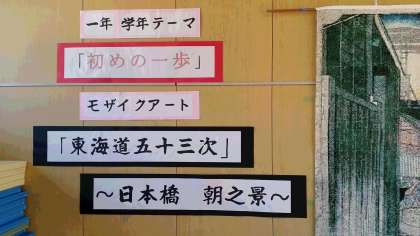 一年 学年テーマ
「初めの一歩」
モザイクアート
「東海道五十三次」
～日本橋 朝之景～